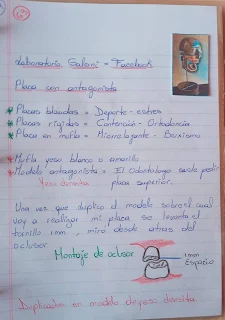 Laboratorio Galeni - Facebook
Placa con antagonista
* Placas blandas = Deporte - estres
* Placas rigidas = Contención - Ortodoncia
* Placa en mufla = Miorrelajante - Bruxismo
* Mufla yeso blanco o amarillo
* Modelo antagonista = El Odontologo suele pedir
Yeso densita placa superior.
Una vez que duplico el modelo sobre el cual
voy a realizar mi placa se levanta el
tornillo 1mm, miro desde atras del
oclusor
Montaje de oclusor
1mm
Espacio
Duplicacion en modelo de yeso densita